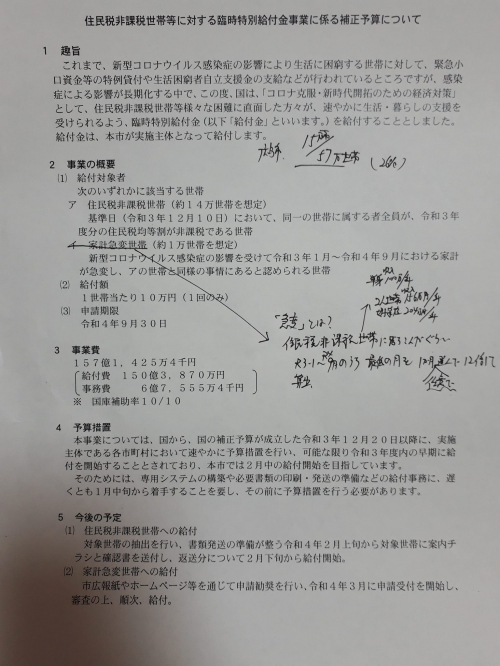 住民税非課税世帯等に対する臨時特別給付金事業に係る補正予算について
1 趣旨
これまで、新型コロナウイルス感染症の影響により生活に困窮する世帯に対して、緊急小
口資金等の特例貸付や生活困窮者自立支援金の支給などが行われているところですが、感染
症による影響が長期化する中で、この度、国は、「コロナ克服・新時代開拓のための経済対策」
として、住民税非課税世帯等様々な困難に直面した方々が、速やかに生活・暮らしの支援を
受けられるよう、臨時特別給付金(以下「給付金」といいます。)を給付することとしました。
給付金は、本市が実施主体となって給付します。
15万世帯
57万世帯
(26%)
2 事業の概要
⑴ 給付対象者
次のいずれかに該当する世帯
ア 住民税非課税世帯(約14万世帯を想定)
基準日(令和3年12月10日)において、同一の世帯に属する者全員が、令和3年
度分の住民税均等割が非課税である世帯
イ 家計急変世帯(約1万世帯を想定)
新型コロナウイルス感染症の影響を受けて令和3年1月~令和4年9月における家計
が急変し、アの世帯と同様の事情にあると認められる世帯
⑵ 給付額
1世帯当たり10万円(1回のみ)
⑶ 申請期限
令和4年9月30日
「急変」とは?
住民税非課税世帯に
3 事業費
157億1,425万4千円
給付費 150億3,870万円
事務費 6億7,555万4千円
※ 国庫補助率10/10
4 予算措置
本事業については、国から、国の補正予算が成立した令和3年12月20日以降に、実施
主体である各市町村において速やかに予算措置を行い、可能な限り令和3年度内の早期に給
付を開始することとされており、本市では2月中の給付開始を目指しています。
そのためには、専用システムの構築や必要書類の印刷・発送の準備などの給付事務に、遅
くとも1月中旬から着手することを要し、その前に予算措置を行う必要があります。
5 今後の予定
⑴ 住民税非課税世帯への給付
対象世帯の抽出を行い、書類発送の準備が整う令和4年2月上旬から対象世帯に案内チ
ラシと確認書を送付し、返送分について2月下旬から給付開始。
⑵ 家計急変世帯への給付
市広報紙やホームページ等を通じて申請勧奨を行い、令和4年3月に申請受付を開始し、
審査の上、順次、給付。